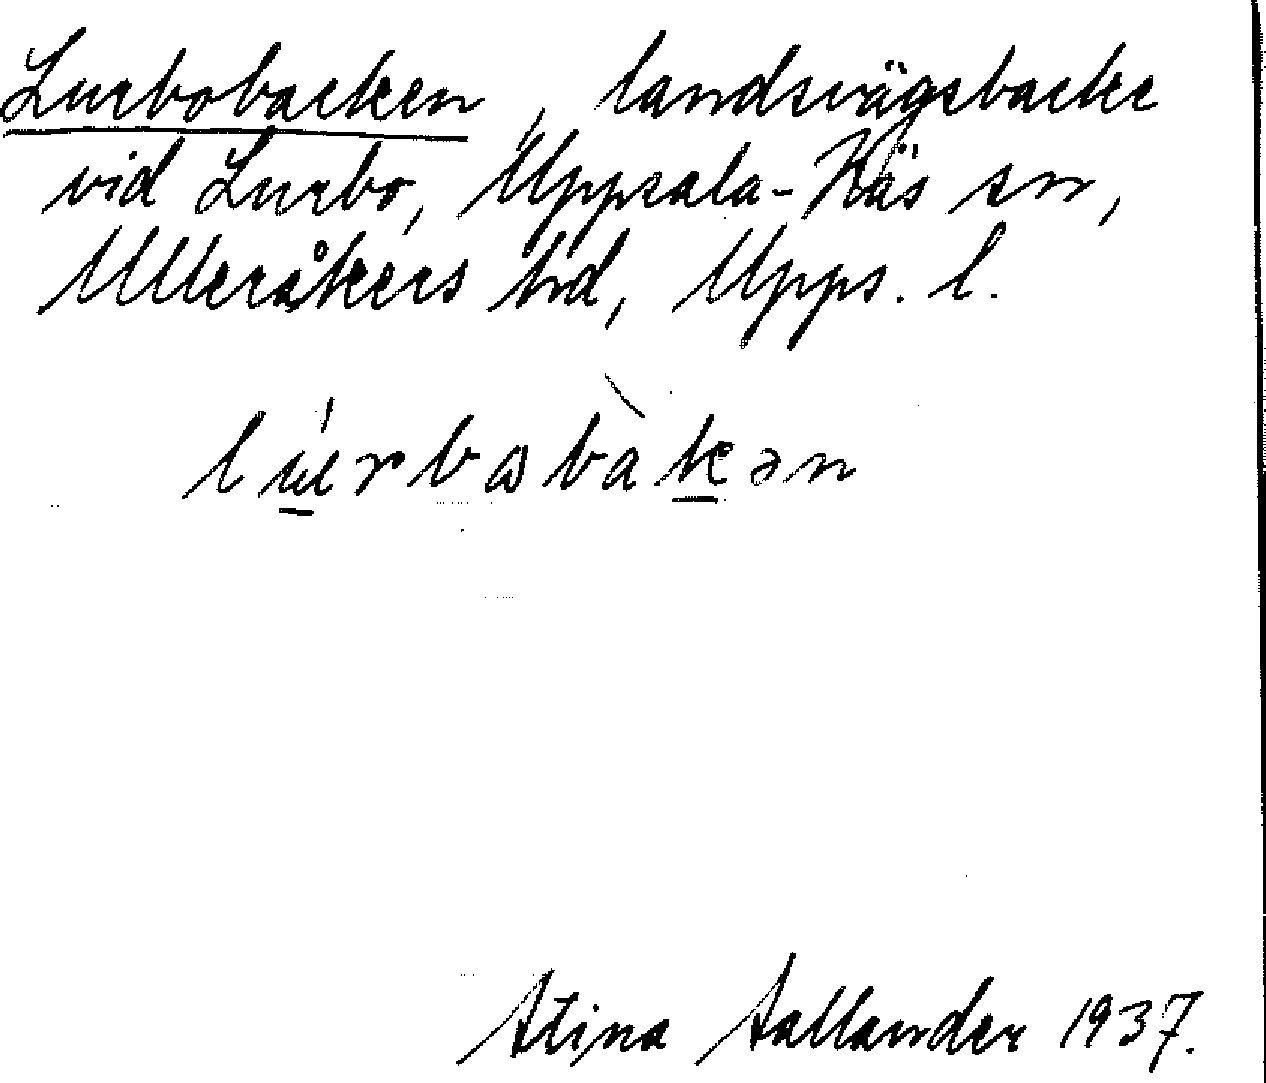 Lurbobacken, landsvägsbacke
vid Lurbo, Uppsala-Näs sn,
Ulleråkers hd, Upps. l.
lu̲rbωbàk̲ən
Stina Sallander 1937.